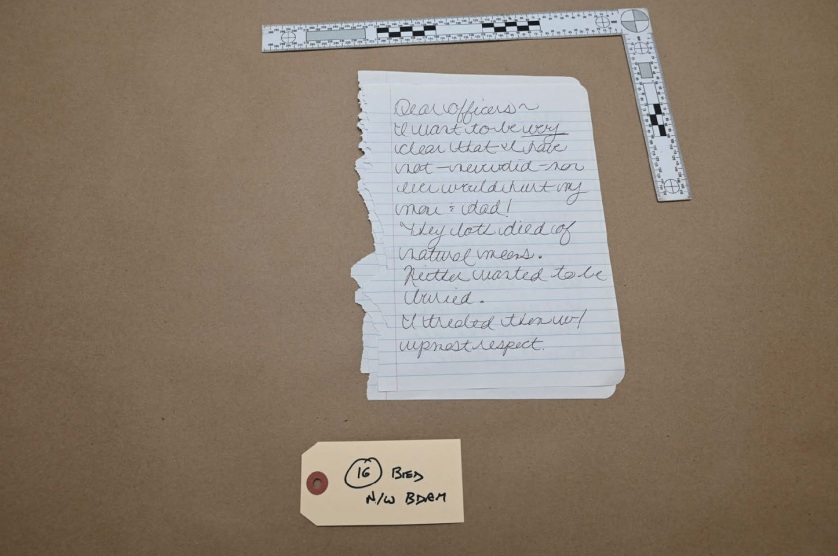 Dear Officers~
I want to be very
clear that I have
not - never did - nor
ever would hurt my
mom & dad!
They both died of
natural means.
Neither wanted to be
buried.
I treated them w/
upmost respect.
16 BED
N/W BDRM